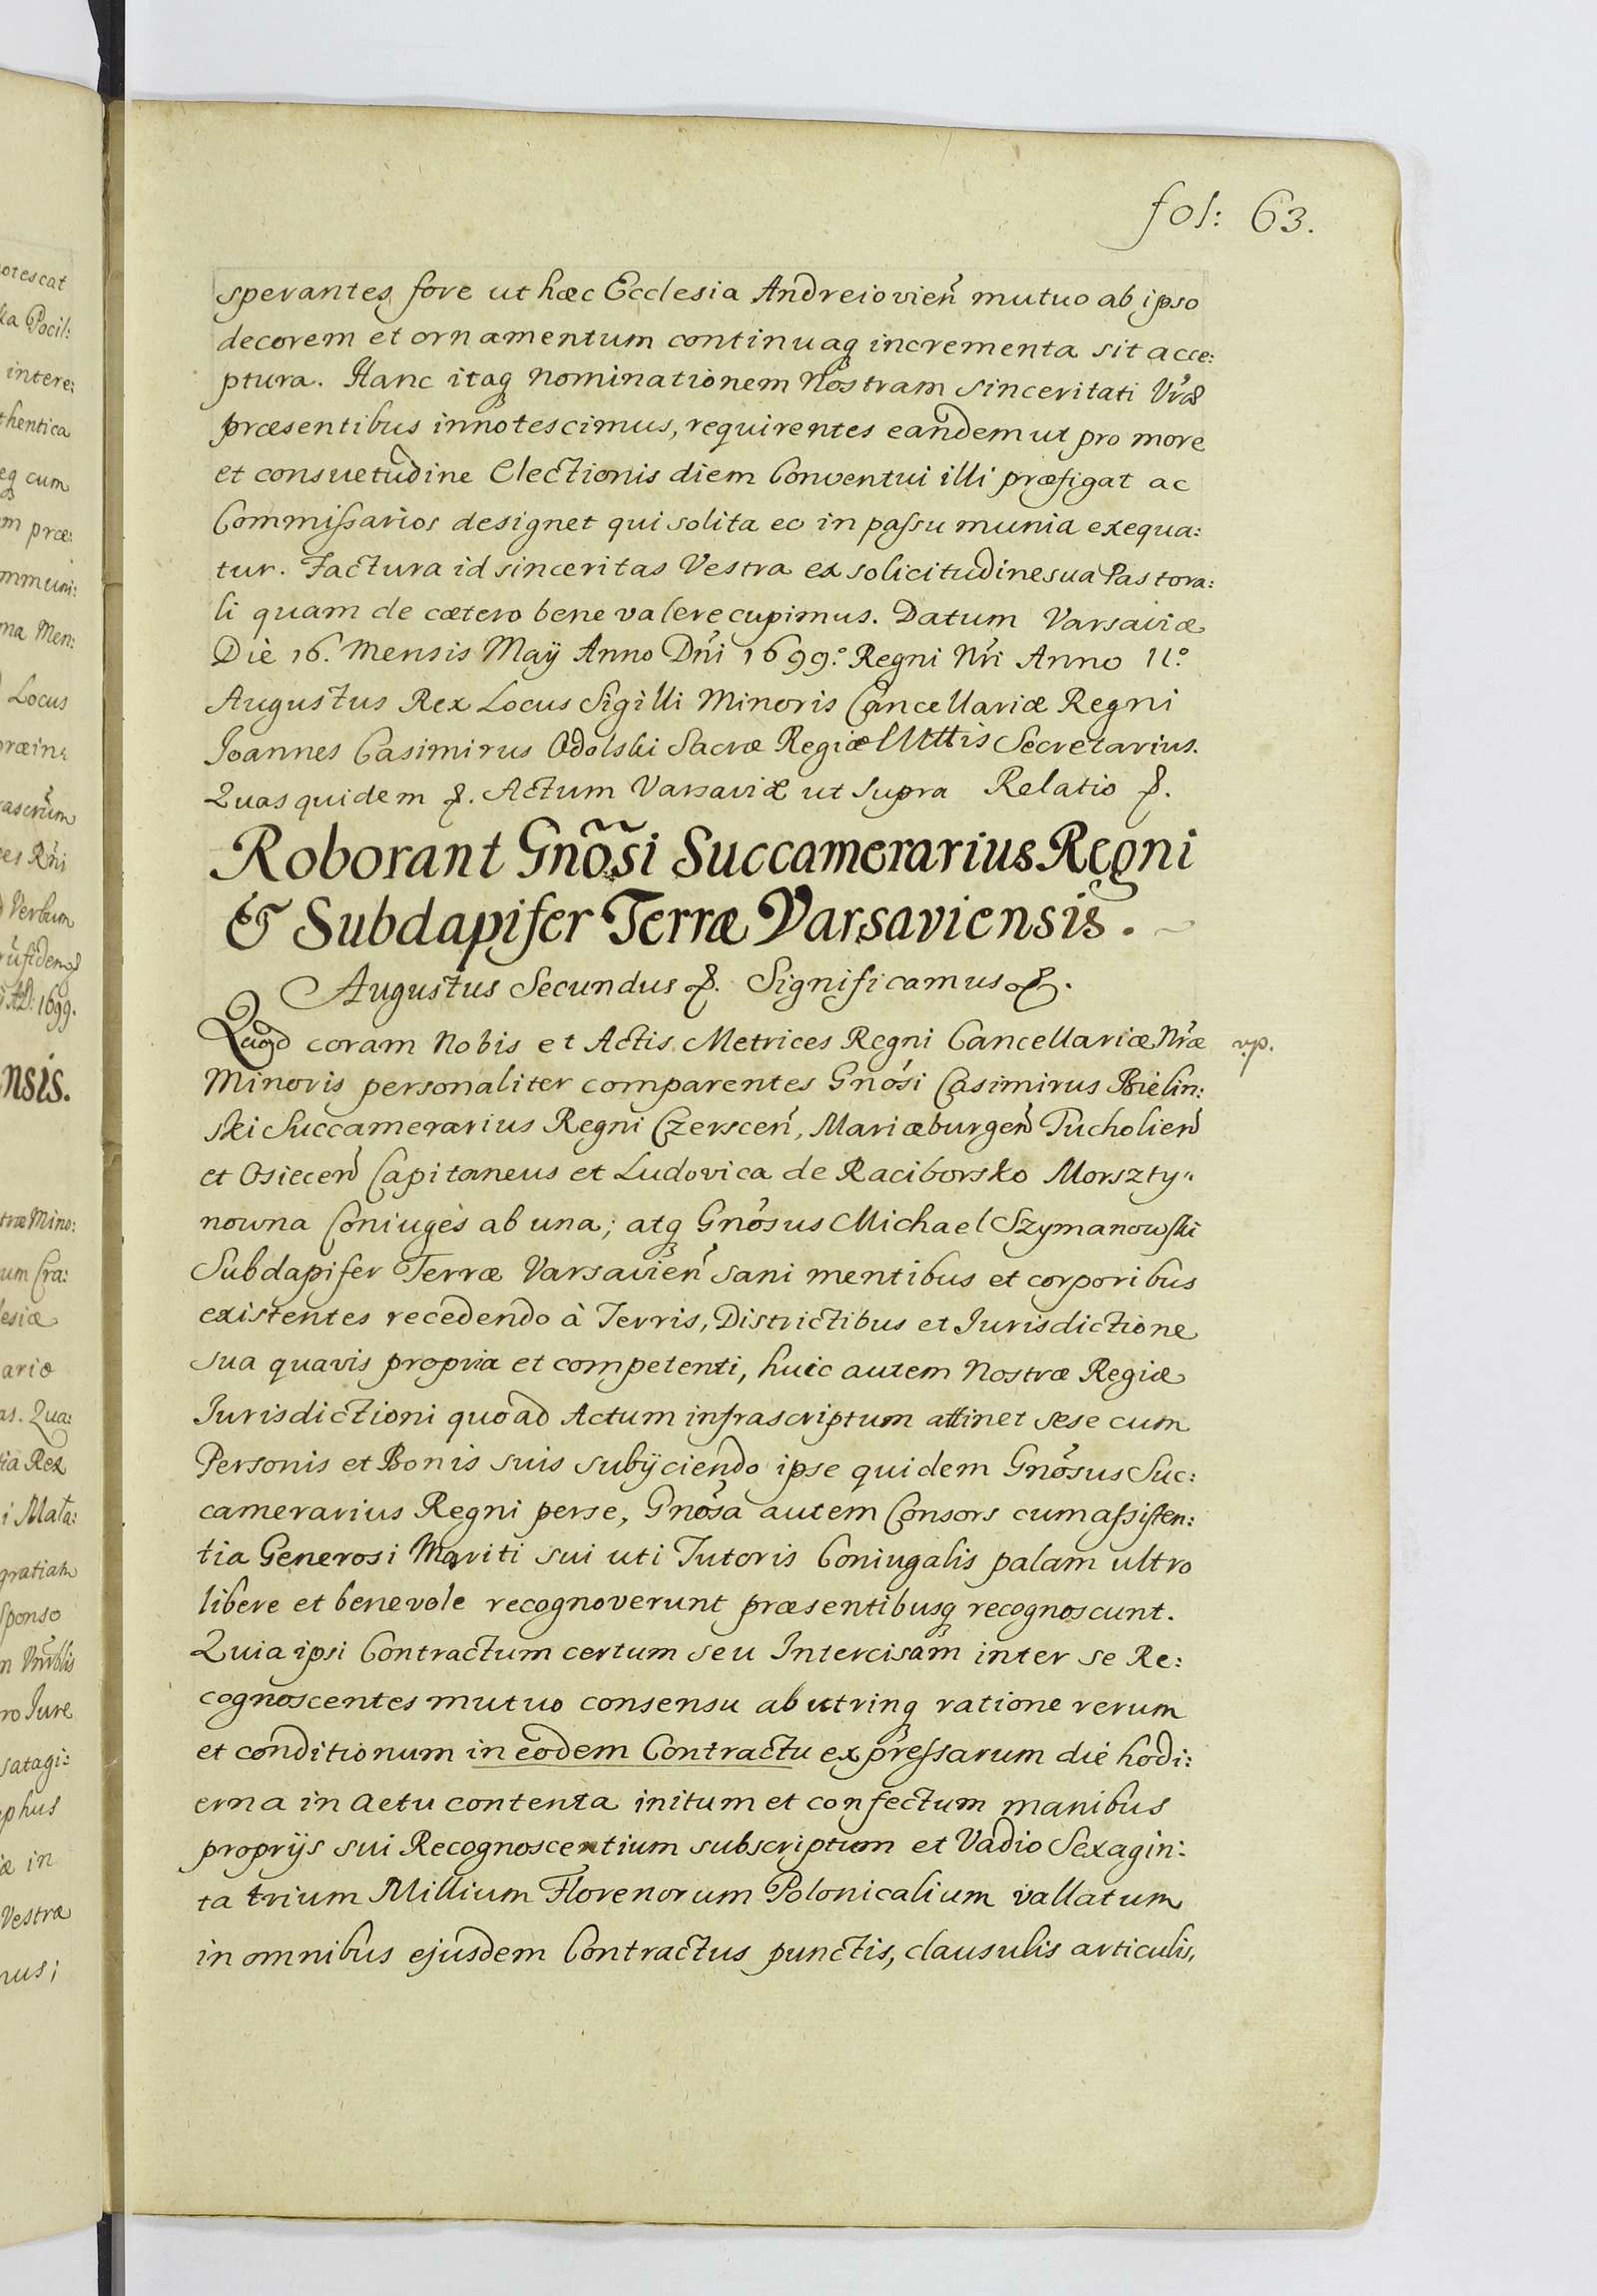 fol: 63.
sperantes fore ut hæc Ecclesia Andreiovień mutuo ab ipso
decorem et ornamentum continuaq incrementa sit acce:
ptura. Hanc itaq nominationem Nostram sinceritati Vræ
præsentibus innotescimus, requirentes eandem ut pro more
et consuetudine Electionis diem Conventui illi præfigat ac
Commissarios designet qui solita eo in passu munia exequa:
tur. Factura id sinceritas Vestra ex solicitudine sua Pastora:
li quam de cætero bene valere cupimus. Datum Varsaviæ
Die 16. Mensis Maÿ Anno Dńi 1699.º Regni Nŕi Anno II.º
Augustus Rex Locus Sigilli Minoris Cancellariæ Regni
Joannes Casimirus Odolski Sacræ Regiæ Mttis Secretarius.
Quas quidem &. Actum Varsaviæ ut supra Relatio &.
Roborant Gnõsi Succamerarius Regni
& Subdapifer Terræ Varsaviensis.
Augustus Secundus &. Significamus &.
Quod coram Nobis et Actis Metrices Regni Cancellariæ Nŕæ
vp.
Minoris personaliter comparentes Gnósi Casimirus Bielin:
ski Succamerarius Regni Czersceń, Mariæburgeń Tucholień
et Osieceń Capitaneus et Ludovica de Raciborsko Morszty"
nowna Coniuges ab una; atq Gnósus Michael Szymanowski
Subdapifer Terræ Varsavień sani mentibus et corporibus
existentes recedendo à Terris, Districtibus et Jurisdictione
sua quavis propria et competenti, huic autem Nostræ Regiæ
Jurisdictioni quoad Actum infrascriptum attinet sese cum
Personis et Bonis suis subÿciendo ipse quidem Gnósus Suc:
camerarius Regni perse, Gnósa autem Consors cum assisten:
tia Generosi Mariti sui uti Tutoris Coniugalis palam ultro
libere et benevole recognoverunt præsentibusq recognoscunt.
Quia ipsi Contractum certum seu Intercisam inter se Re:
cognoscentes mutuo consensu ab utrinq ratione rerum
et conditionum in eodem Contractu expressarum die hodi:
erna in actu contenta initum et confectum manibus
proprÿs sui Recognoscentium subscriptum et Vadio Sexagin:
ta trium Millium Florenorum Polonicalium vallatum
in omnibus ejusdem Contractus punctis, clausulis articulis,